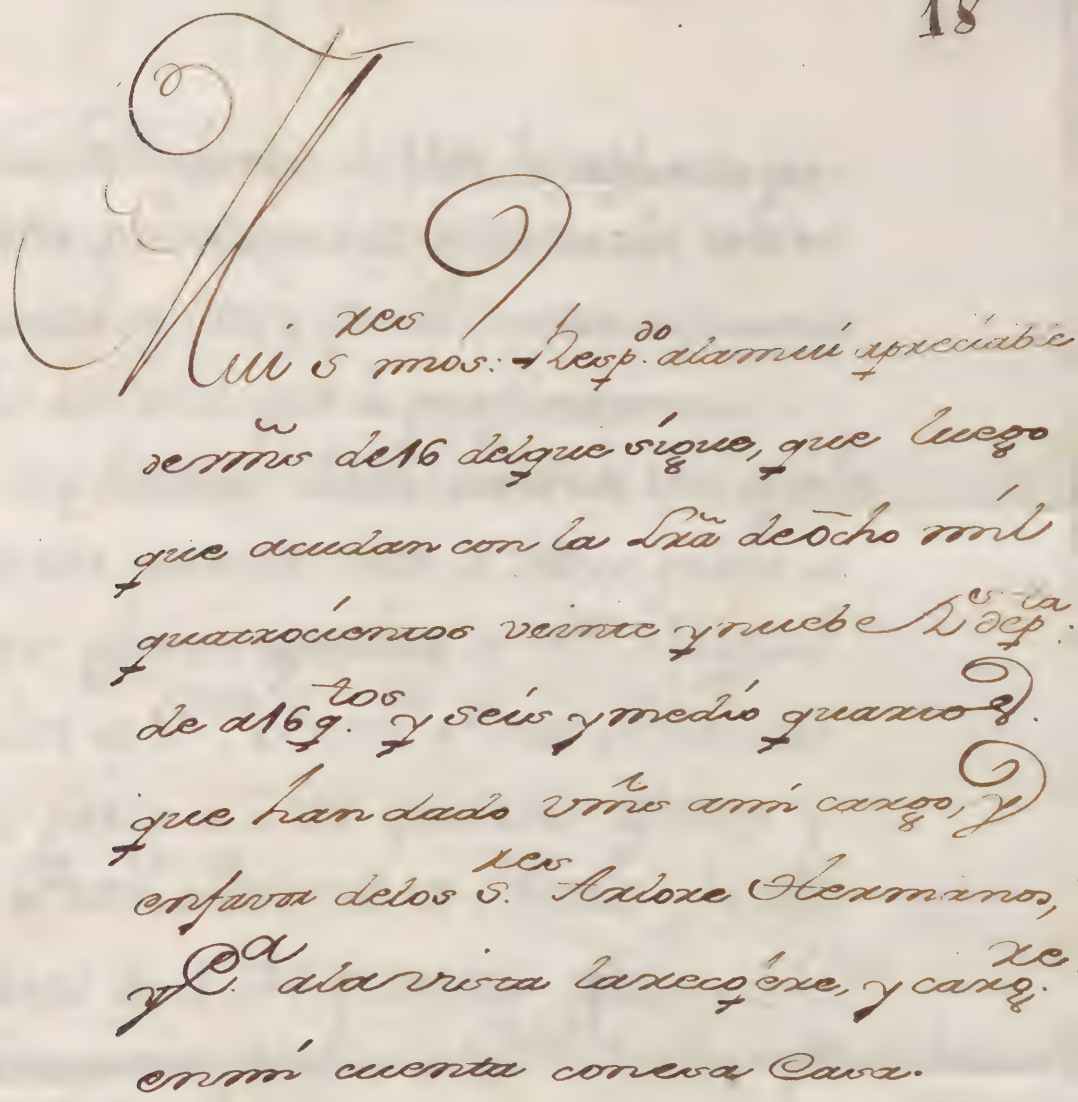 18
Mui S.res mios: Resp.do ala mui apreciable
de vmñs de 16 delque sigue, que luego
que acudan con la Lrã de ocho mil
quatrocientos veinte ynuebe R.es de p.ta
de a 16 q.tos y seis ymedio quartos.
que han dado vmñs ami cargo, y
enfavor delos S.res Arlore Hermanos,
y C.a ala vista larecogére, y carg.re
enmi cuenta conesa Casa.